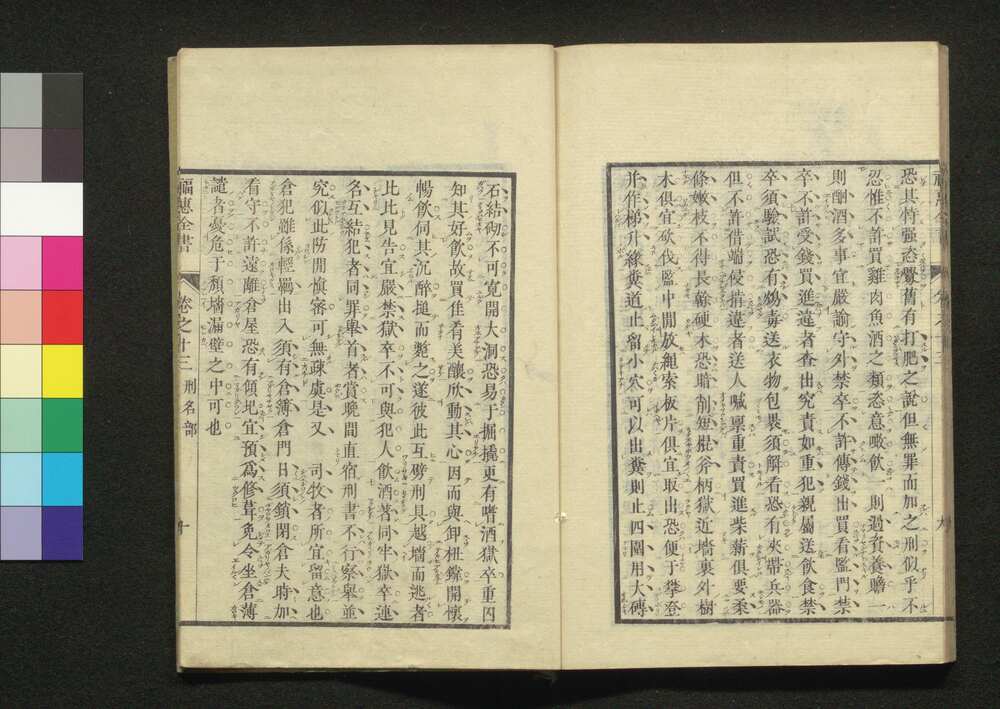 恐其恃强恣釁舊有打肥之説但無罪而加之刑似乎不
忍惟不許買雞肉魚酒之類恣意噉飲一則過於養贍一
則酗酒多事宜嚴諭守外禁卒不許傳錢出買看監門禁
卒不許受錢買進違者查出究責如重犯親屬送飲食禁
卒須驗試恐有鴆毒送衣物包裹須解看恐有夾帶兵器
但不許借端侵掯違者送人喊稟重責買進柴薪俱要柔
條嫩枝不得長幹硬木恐暗削短棍斧柄獄近墻裏外樹
木俱宜砍伐監中閒放繩索板片俱宜取出恐便于攀登
并作梯升緣糞道止留小穴可以出糞則止四圍用大磚
石結砌不可寬開大洞恐易于掘撬更有嗜酒獄卒重囚
知其好飲故買佳肴美釀所動其心因而與卸杻鐐開懷
暢飲伺其沉醉搥而斃之遂彼此互劈刑具越墻而逃者
比比見告宜嚴禁獄卒不可與犯人飲酒著同牢獄卒連
名互結犯者同罪舉首者賞晩間直宿刑書不行察舉並
究似此防閑愼審可無疎虞是又　司牧者所宜留意也
倉犯雖係輕羈出入須有倉簿倉門日須鎖閉倉夫時加
看守不許遠離倉屋恐有傾圮宜預爲修葺免令坐倉薄
譴者憂危于頽墻漏壁之中可也
福惠全書
卷之十三
刑名部
十